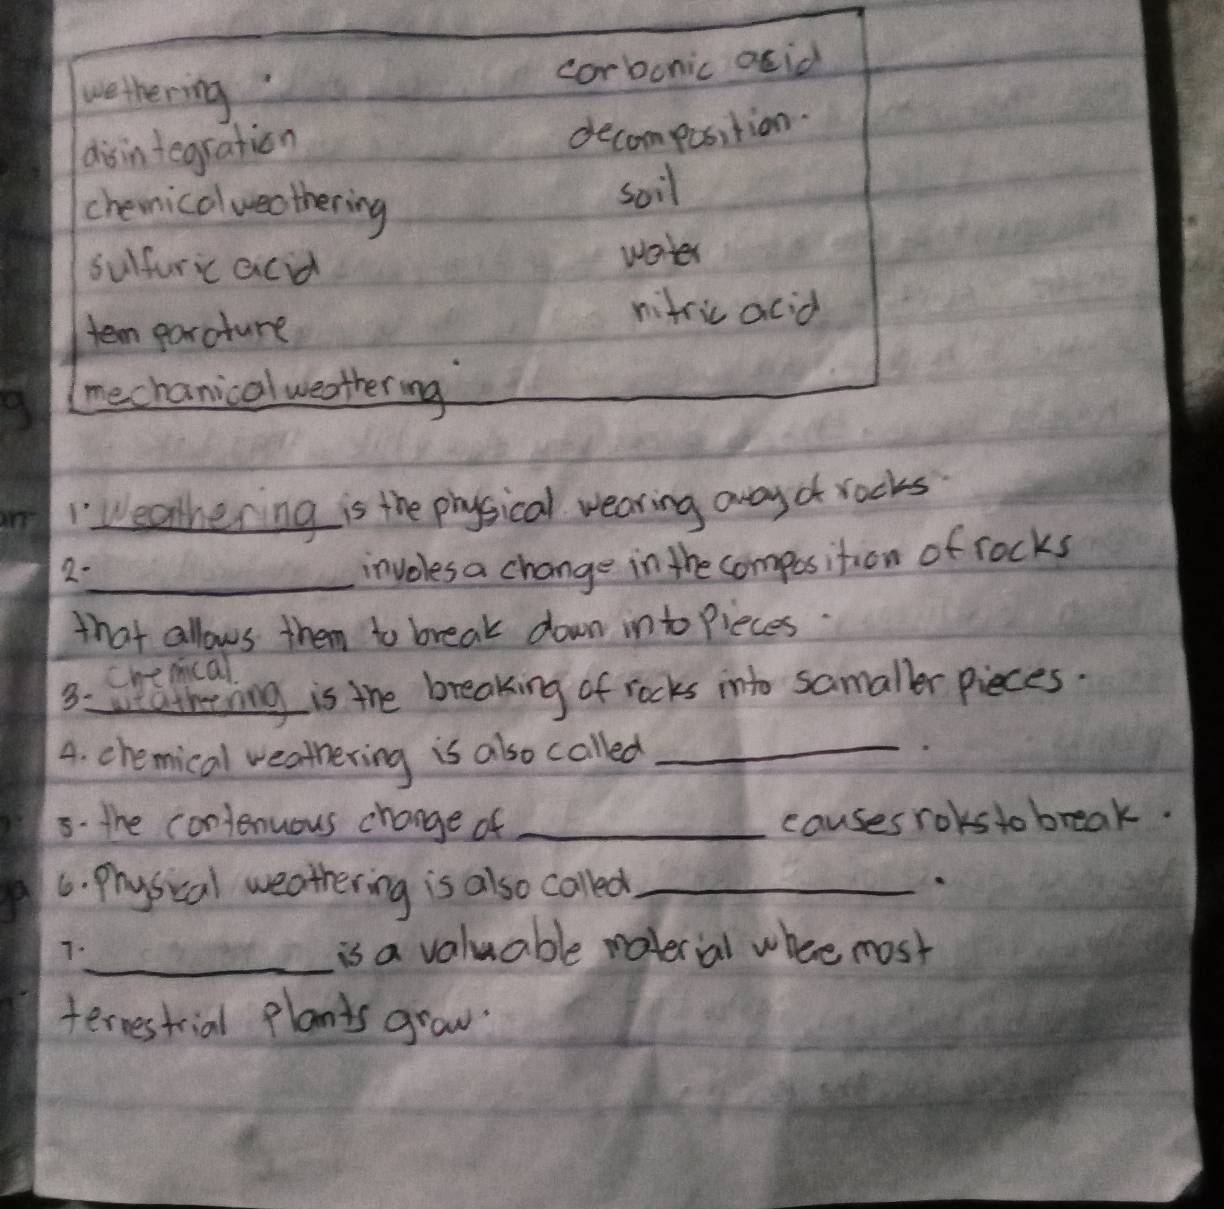 wethering
corbonic acid
disintegration
decomposition.
chemical weathering
soil
sulfuric acid
water
temparature
nitric acid
mechanical weathering
1. Weathering is the physical wearing away of rocks
2. ____________ involes a change in the composition of rocks
that allows them to break down into pieces.
chemical
3. weathering is the breaking of rocks into samaller pieces.
4. chemical weathering is also called ____________.
5. the contenuous change of ____________ causes roks to break.
6. Physical weathering is also called ____________.
7. ____________ is a valuable material where most
terrestrial plants grow.